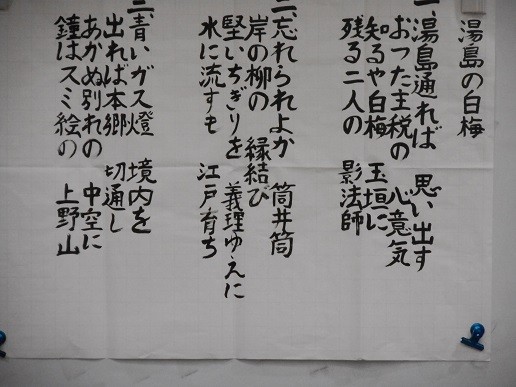 湯島の白梅
一、湯島通れば 思い出す
おった主税の 心意気
知るや白梅 玉垣に
残る二人の 影法師
二、忘れられよか 筒井筒
岸の柳の 縁結び
堅いちぎりを 義理ゆえに
水に流すも 江戸育ち
三、青いガス燈 境内を
出れば本郷 切通し
あかぬ別れの 中空に
鐘はスミ絵の 上野山